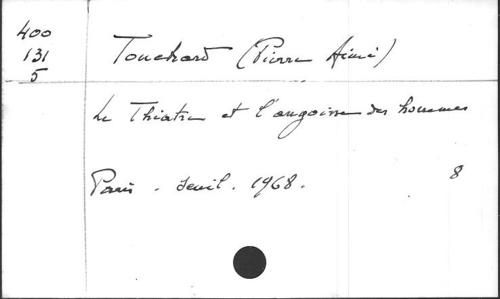 400
131
5
Touchard (Pierre Aimé)
Le Théâtre et l'angoisse des hommes
Paris. Seuil. 1968.
8